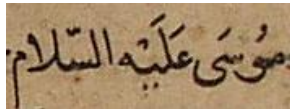 مُوسَى عَلَيْه السّلام